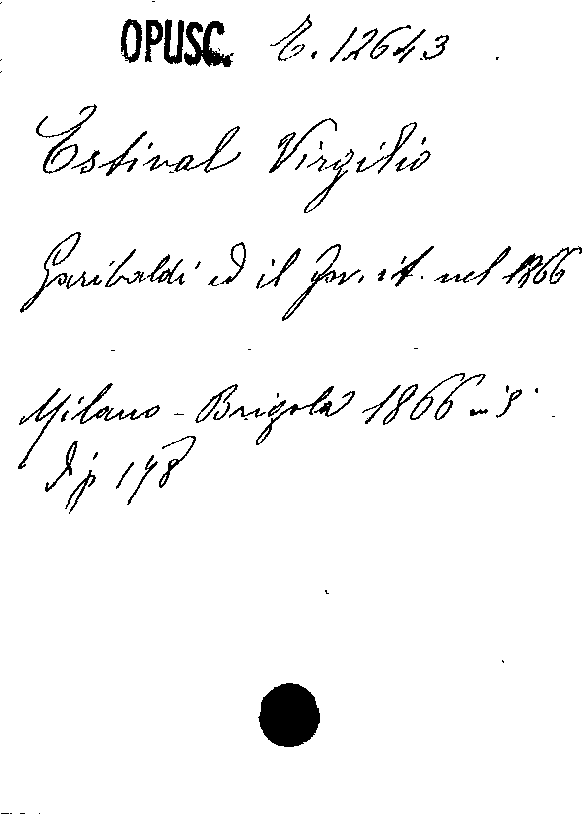 OPUSC. E. 12643
Estival Virgilio
Garibaldi ed il Gov. it. nel 1866
Milano - Brigola 1866 in 8°
di p 148